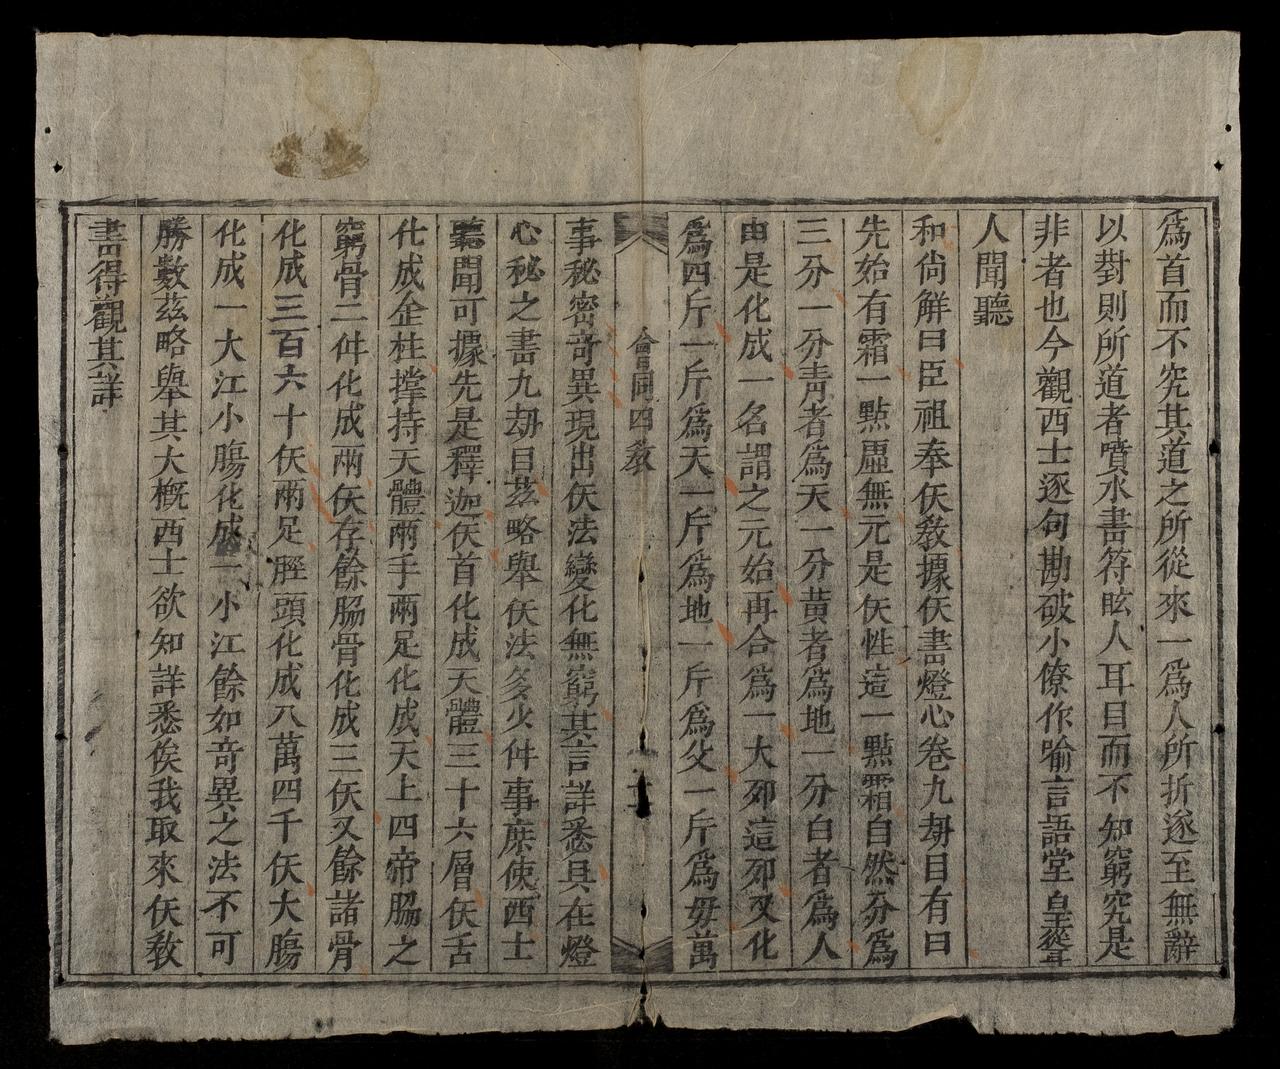 爲首而不究其道之所從來一爲人所折遂至無辭
以對則所道者噴水書符眩人耳目而不知窮究是
非者也今觀西士逐句勘破小僚作喻言語堂皇聳
人聞聽
和尙觧曰臣祖奉仸敎據仸書燈心卷九刼目有曰
先始有霜一點虛無元是仸性這一點霜自然分爲
三分一分靑者爲天一分黃者爲地一分白者爲人
由是化成一名謂之元始再合爲一大夘這夘又化
爲四斤一斤爲天一斤爲地一斤爲父一斤爲母萬
會同四敎
事秘密竒異現出仸法變化無窮其言詳悉具在燈
心秘之書九刼目茲略舉仸法多少件事庶使西士
聽聞可據先是釋迦仸首化成天體三十六層仸舌
化成企柱撑持天體兩手兩足化成天上四帝脇之
窮骨二件化成兩仸存餘脇骨化成三仸又餘諸骨
化成三百六十仸兩足脛頭化成八萬四千仸大腸
化成一大江小腸化成一小江餘如竒異之法不可
勝數茲略舉其大槪西士欲知詳悉俟我取來仸敎
書得觀其詳